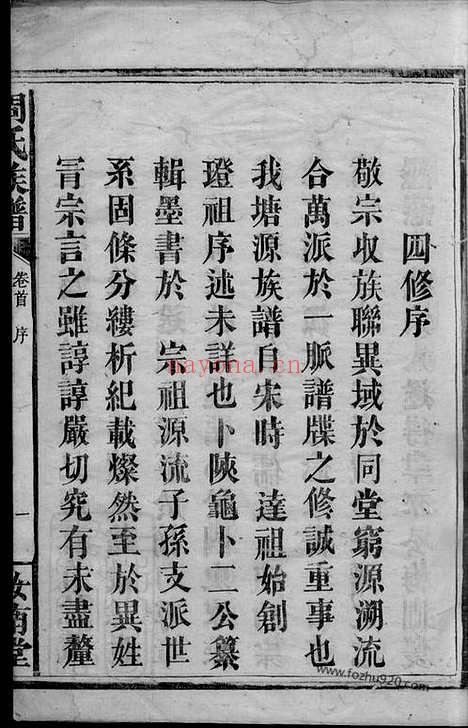 四修序
敬宗收族聯異域於同堂窮源溯流
合萬派於一脈譜牒之修誠重事也
我塘源族譜自宋時 達祖始創
璒祖序述未詳也卜陝龜卜二公纂
輯墨書於 宗祖源流子孫支派世
系固條分縷析紀載燦然至於異姓
冐宗言之雖諄諄嚴切究有未盡釐
周氏族譜
卷首 序
一
汝南堂
nayona.cn
www.fozhu920.com